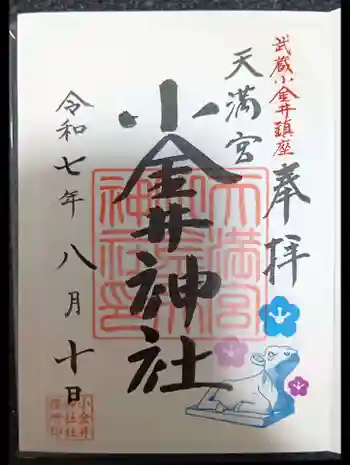 武蔵小金井鎮座
奉拝
天満宮
小金井神社
令和七年八月十日